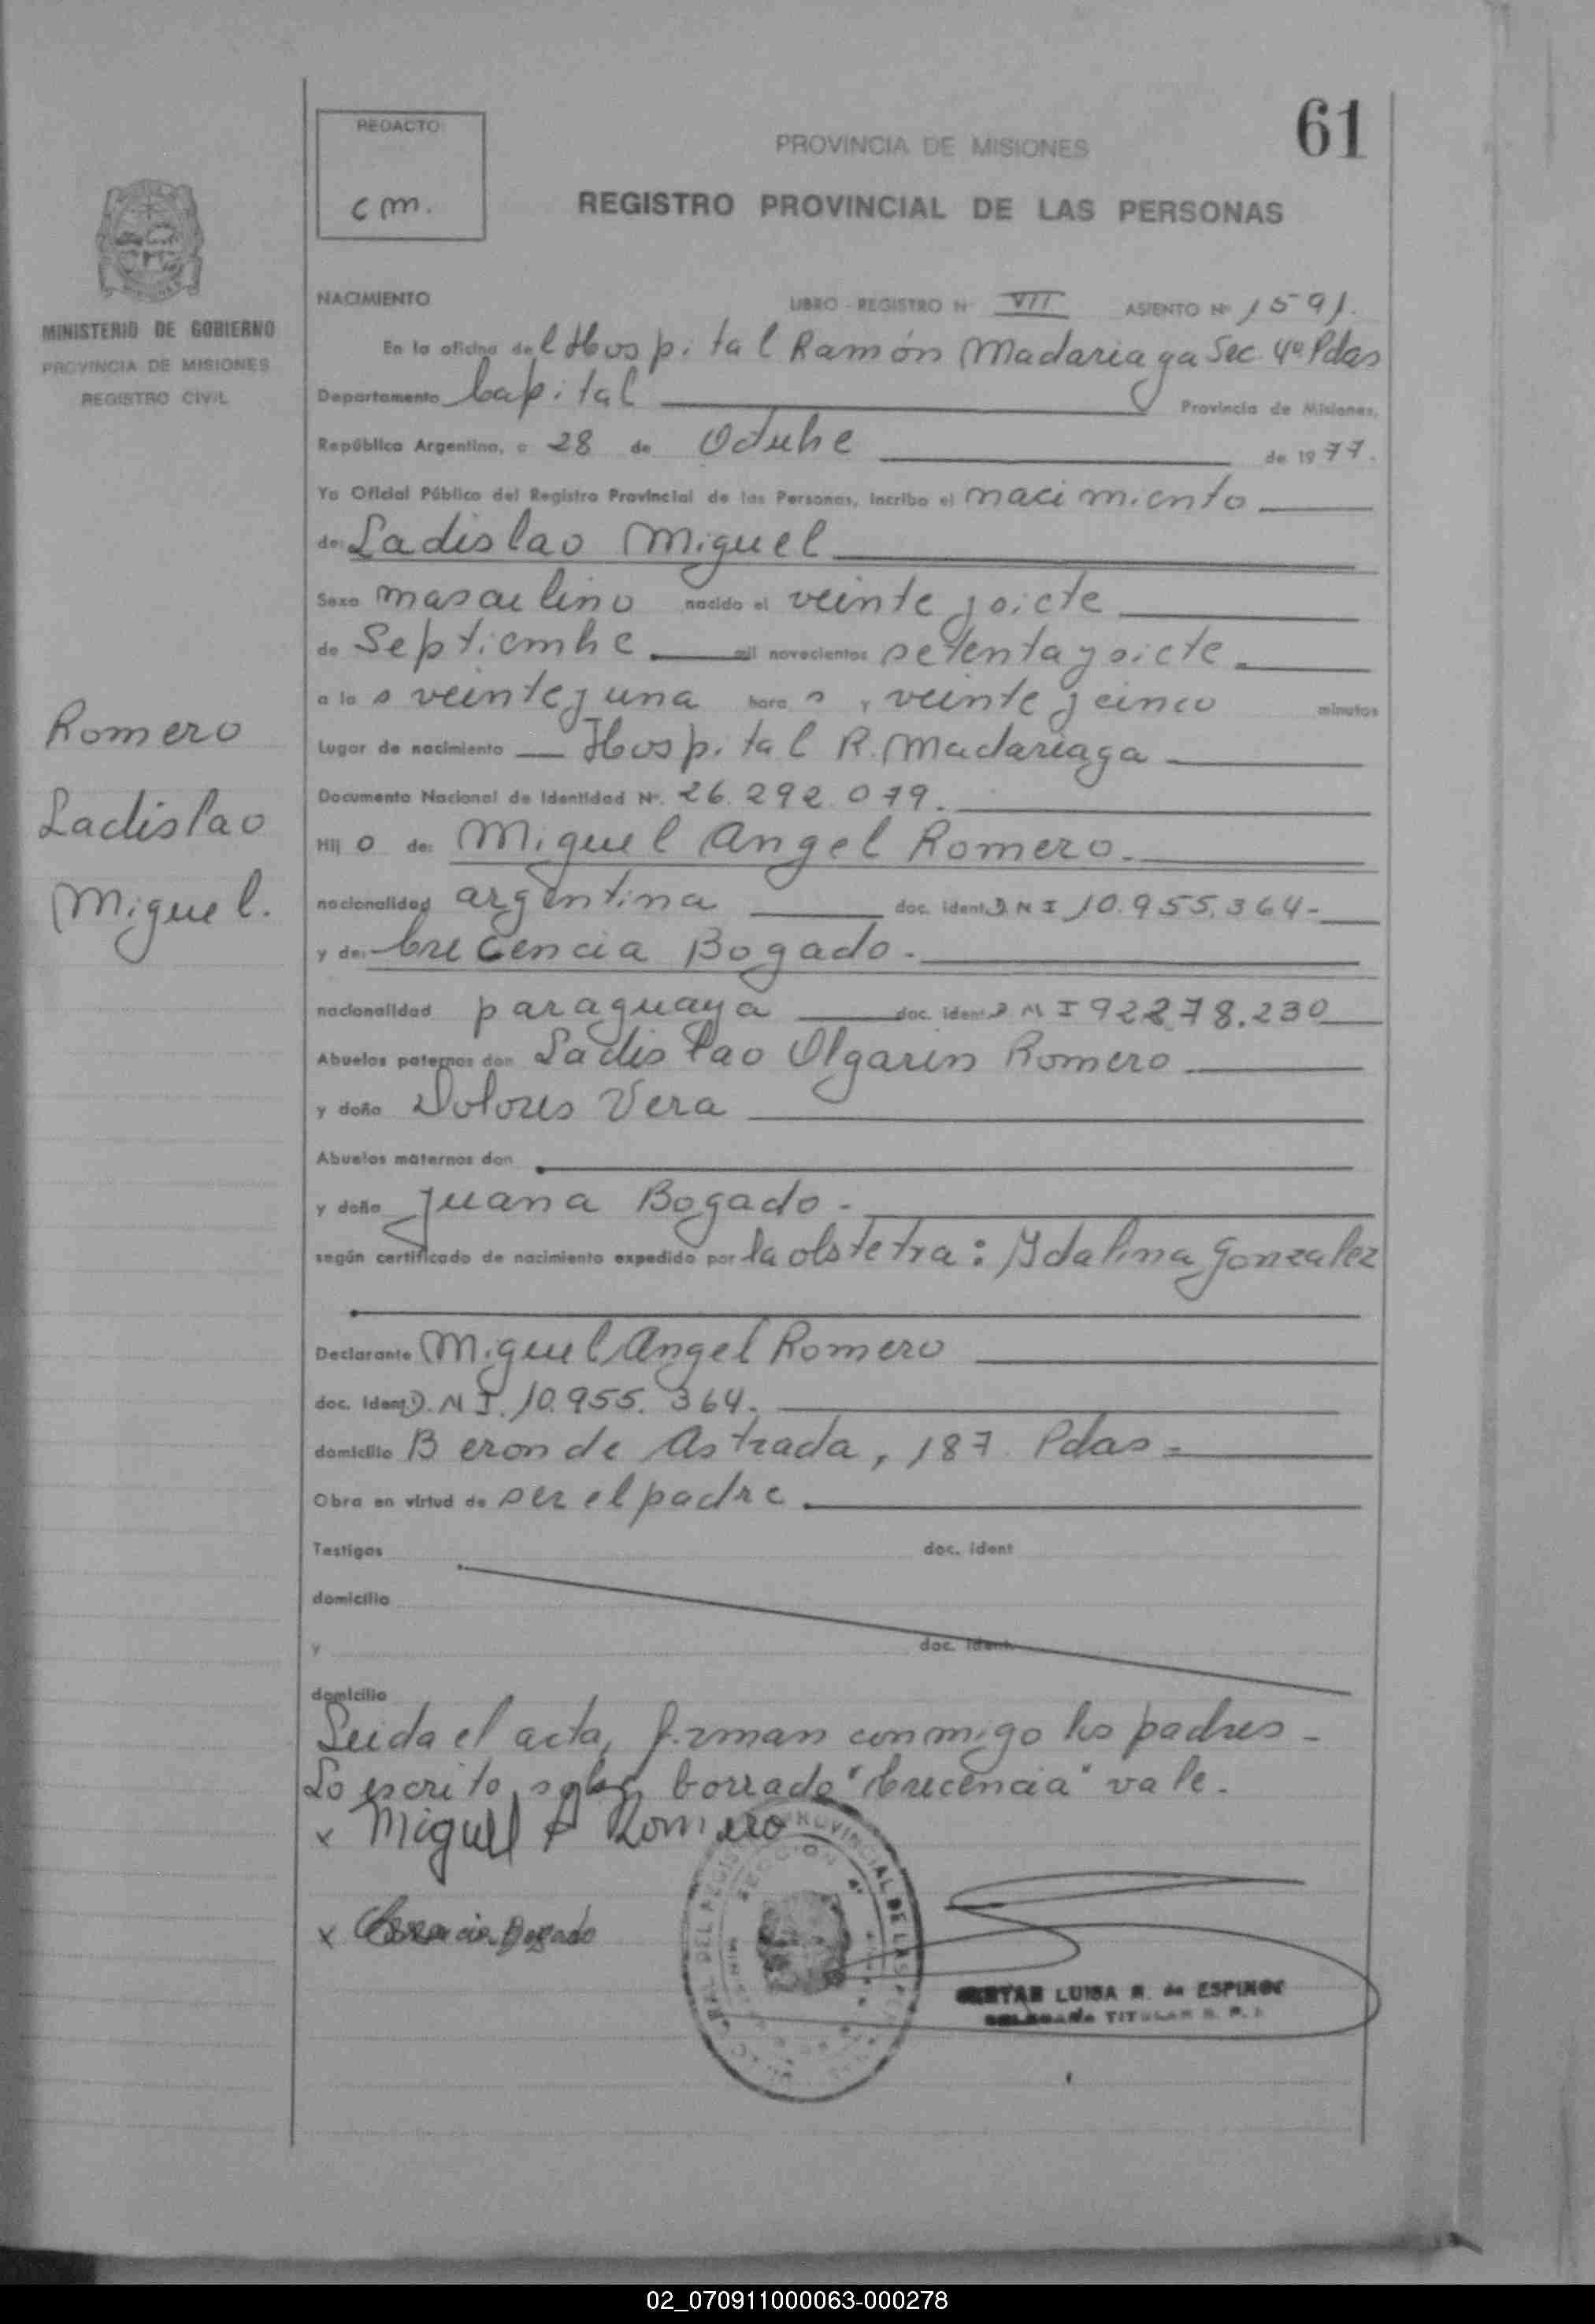 61
REDACTO:
cm.
PROVINCIA DE MISIONES
REGISTRO PROVINCIAL DE LAS PERSONAS
MINISTERIO DE GOBIERNO
PROVINCIA DE MISIONES
REGISTRO CIVIL
NACIMIENTO LIBRO - REGISTRO Nº VII ASIENTO Nº 1591.
En la oficina del Hospital Ramón Madariaga Sec. 4º Pdas
Departamento Capital Provincia de Misiones,
República Argentina, a 28 de Octubre de 1977.
Yo Oficial Público del Registro Provincial de las Personas, incribo el nacimiento
de: Ladislao Miguel
Sexo masculino nacido el veinte y siete
de Septiembre mil novecientos setenta y siete
a las veinte y una horas y veinte y cinco minutos
Lugar de nacimiento Hospital R. Madariaga
Documento Nacional de Identidad Nº. 26.292.079.
Hijo de: Miguel Angel Romero.
nacionalidad argentina doc. ident. D N I 10.955.364-
y de: Crecencia Bogado.
nacionalidad paraguaya doc. ident. D N I 92278.230
Abuelos paternos don Ladislao Olgarin Romero
y doña Dolores Vera
Abuelos maternos don
y doña Juana Bogado -
según certificado de nacimiento expedido por la obstetra: Ydalina Gonzalez
Declarante Miguel Angel Romero
doc. ident. D.N I. 10.955.364.
domicilio Beron de Astrada, 187 Pdas -
Obra en virtud de ser el padre
Testigos doc. ident
domicilio
y doc. ident.
domicilio
Leida el acta, firman conmigo los padres -
Lo escrito sobre borrado "Crecencia" vale.
x Miguel A Romero
x Bogado
Romero
Ladislao
Miguel.
LUISA R. de ESPINOZ
TITULAR R. P.
02_070911000063-000278